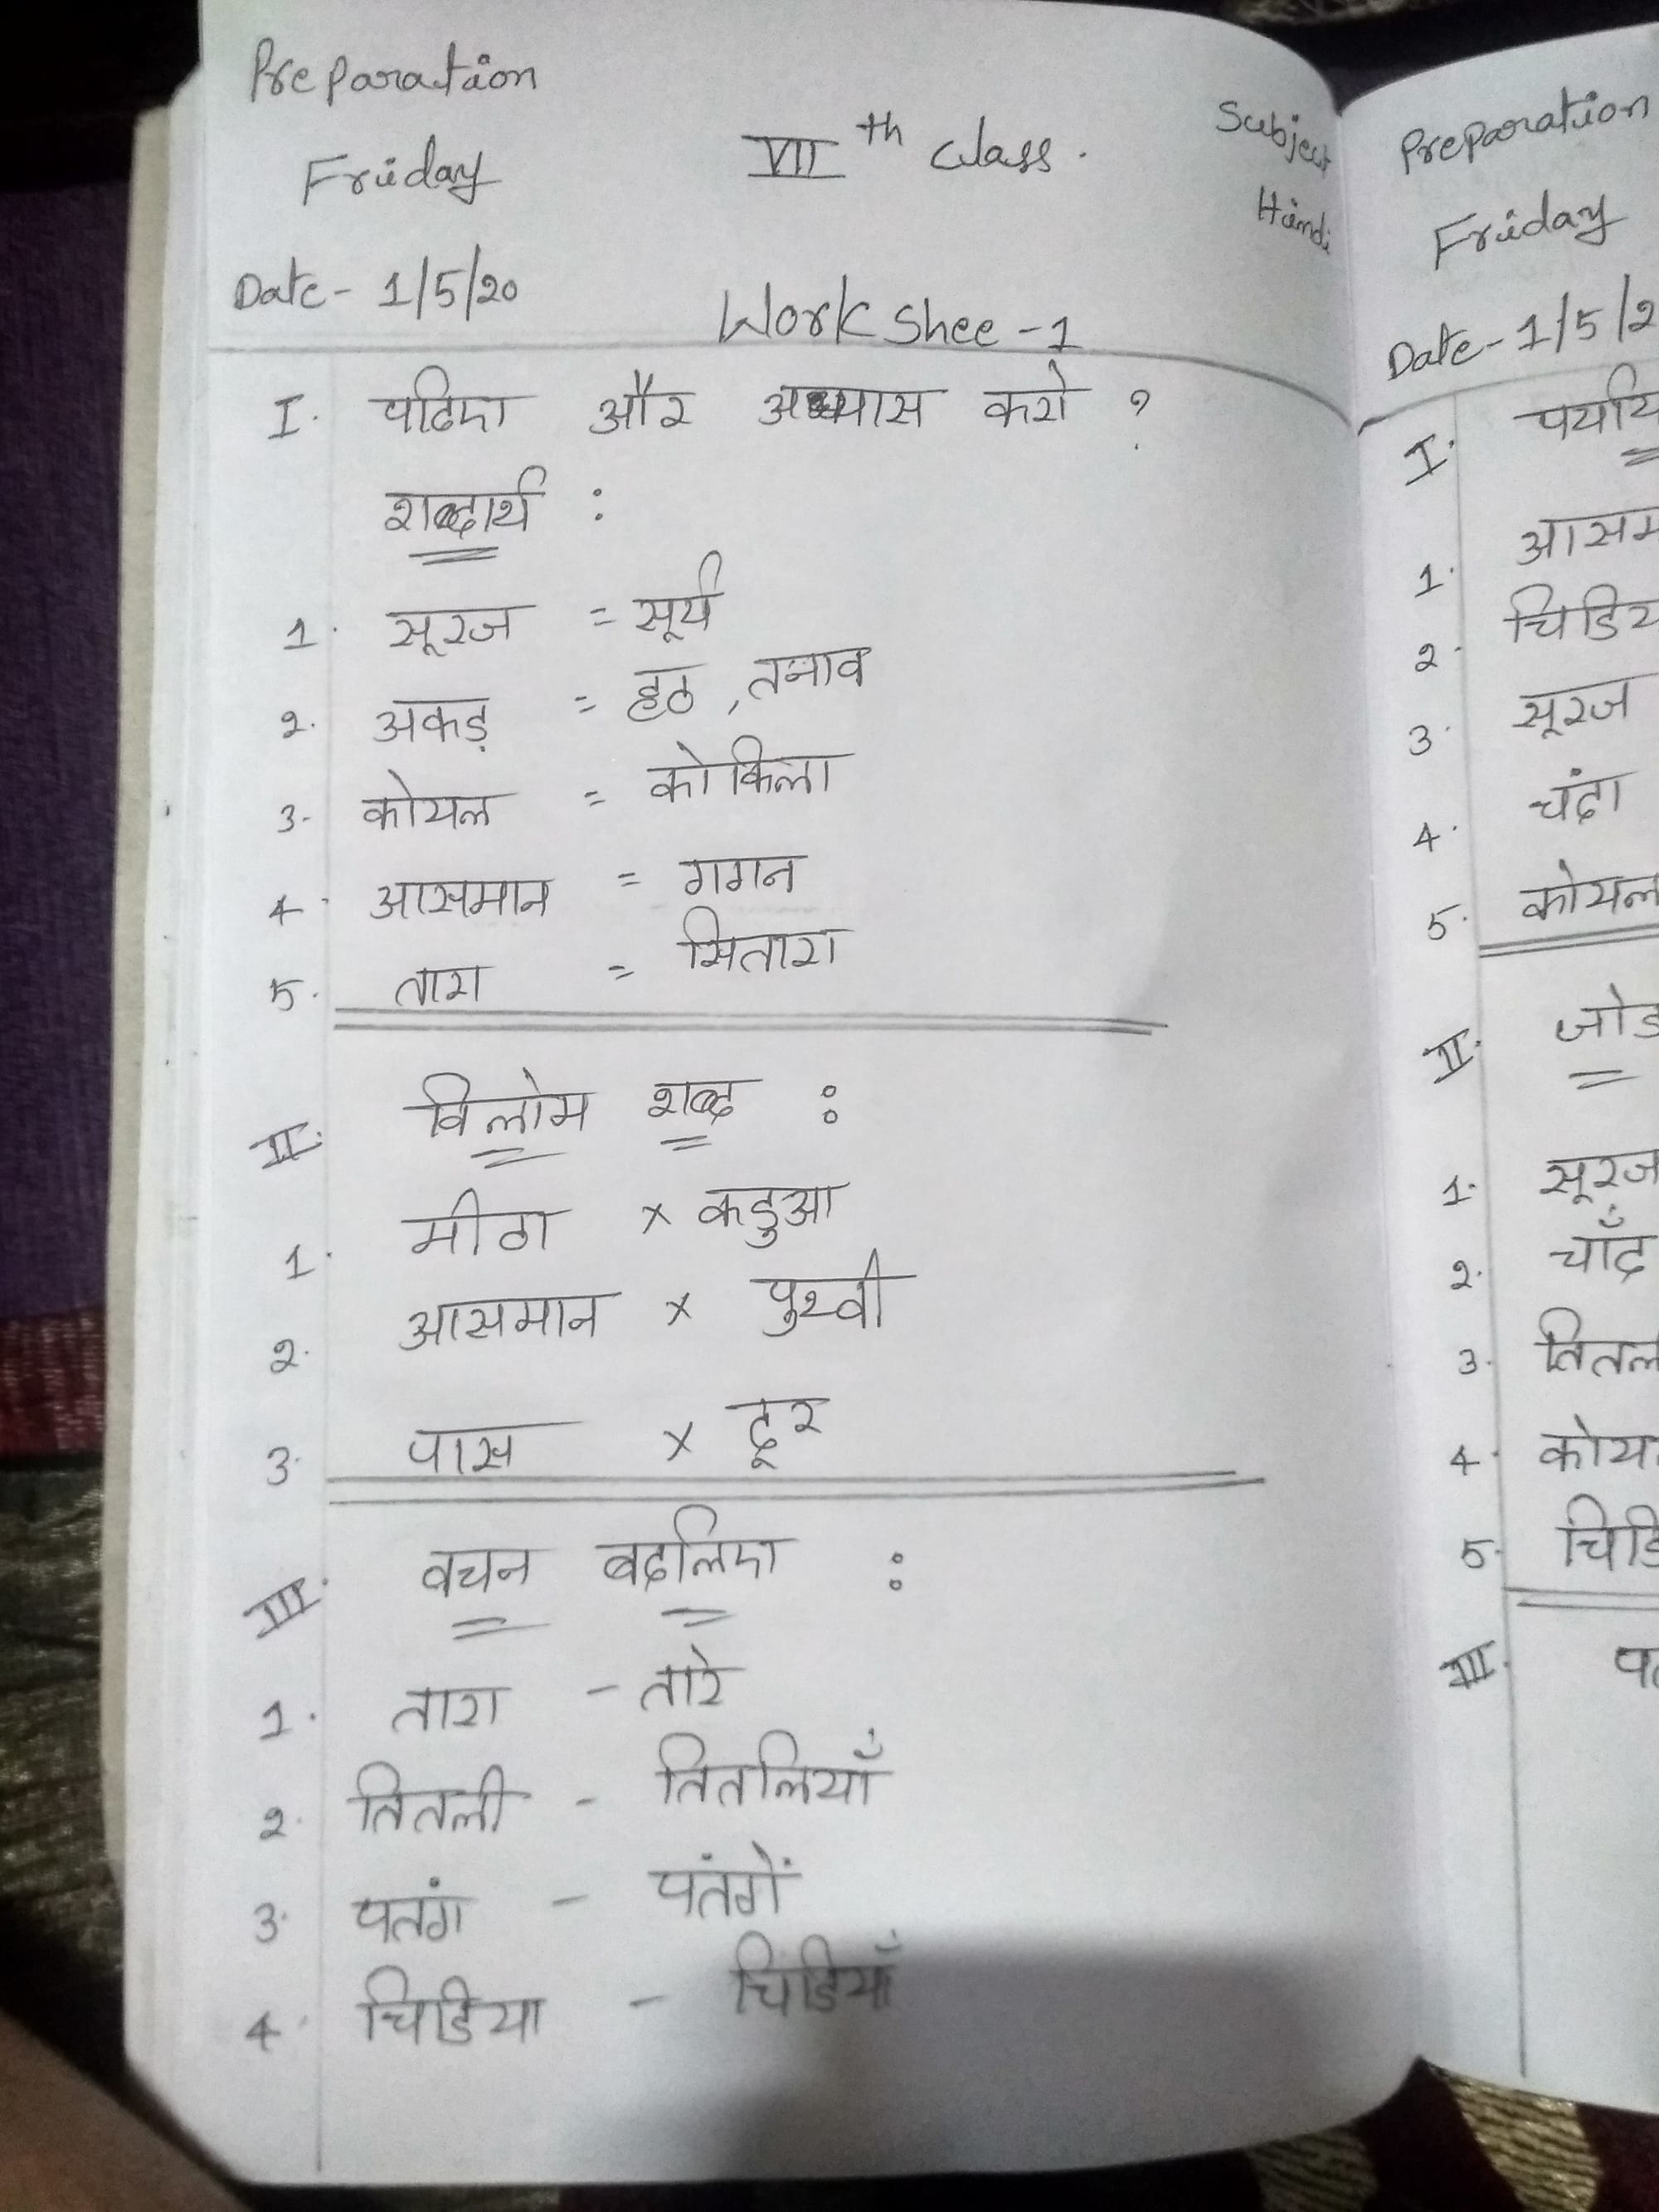 Preparation
Friday
VII th class.
Subject
Hindi
Date- 1/5/20
Work Shee -1
I. पढिए और अभ्यास करो ?
शब्दार्थ :
1. सूरज = सूर्य
2. अकड़ = हठ, तनाव
3. कोयल = कोकिला
4. आसमान = गगन
5. तारा = सितारा
II. विलोम शब्द :
1. मीठा x कडुआ
2. आसमान x पुथ्वी
3. पास x दूर
III. वचन बदलिए :
1. तारा - तारे
2. तितली - तितलियाँ
3. पतंग - पंतगें
4. चिडिया - चिडियाँ
Preparation
Friday
Date- 1/5/2
I.
1. आसम
2. चिडिय
3. सूरज
4. चंदा
5. कोयल
II. जोड
1. सूरज
2. चाँद
3. तितल
4. कोय
5. चिडि
III.